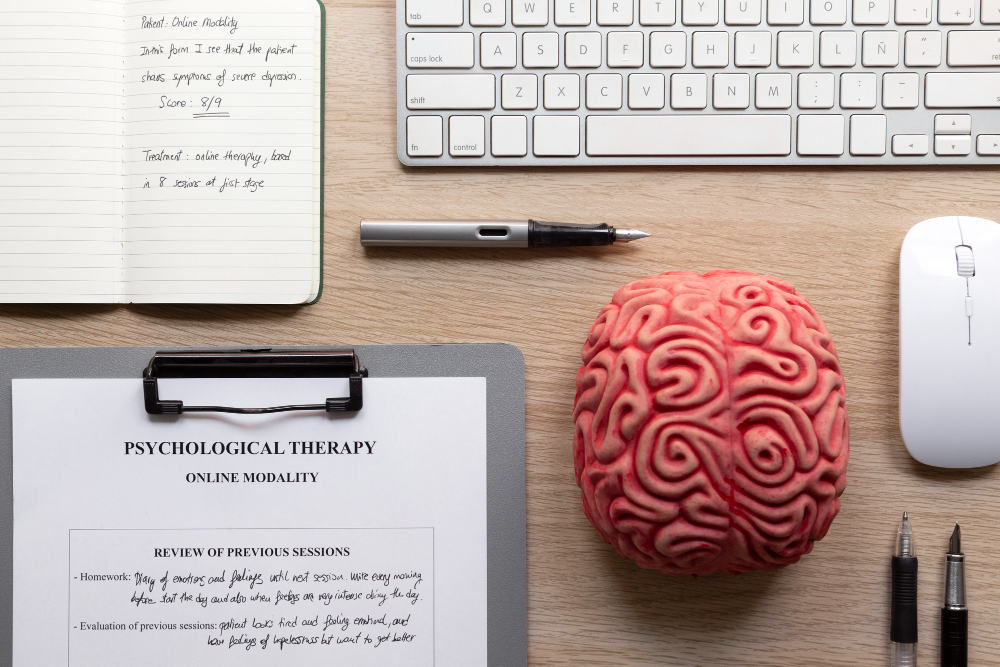 Patient: Online Modality
In this form I see that the patient
shows symptoms of severe depression.
Score: 8/9
Treatment: online theraphy, based
in 8 sessions at first stage
tab Q W E R T Y U I O P
caps lock A S D F G H J K L Ñ
shift Z X C V B N M ; , : . _ -
fn control
PSYCHOLOGICAL THERAPY
ONLINE MODALITY
REVIEW OF PREVIOUS SESSIONS
- Homework: Diary of emotions and feelings until next session. Write every morning
before start the day and also when feelings are very intense during the day.
- Evaluation of previous sessions: patient looks tired and feeling emotional, and
have feelings of hopelessness but want to get better